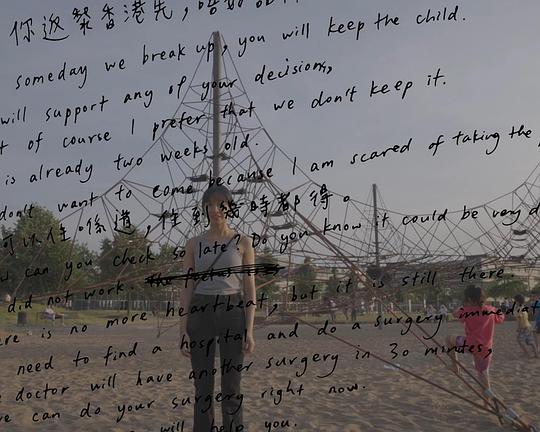 你返黎香港先，
someday we break up, you will keep the child.
will support any of your decisions,
of course I prefer that we don't keep it.
is already two weeks old.
don't want to come because I am scared of taking the
可以住喺道，住到幾時都得。
can you check so late? Do you know it could be very
did not work. the foetus
there is no more heartbeat, but it is still there.
need to find a hospital and do a surgery immediat
doctor will have another surgery in 30 minutes,
we can do your surgery right now.
will help you.